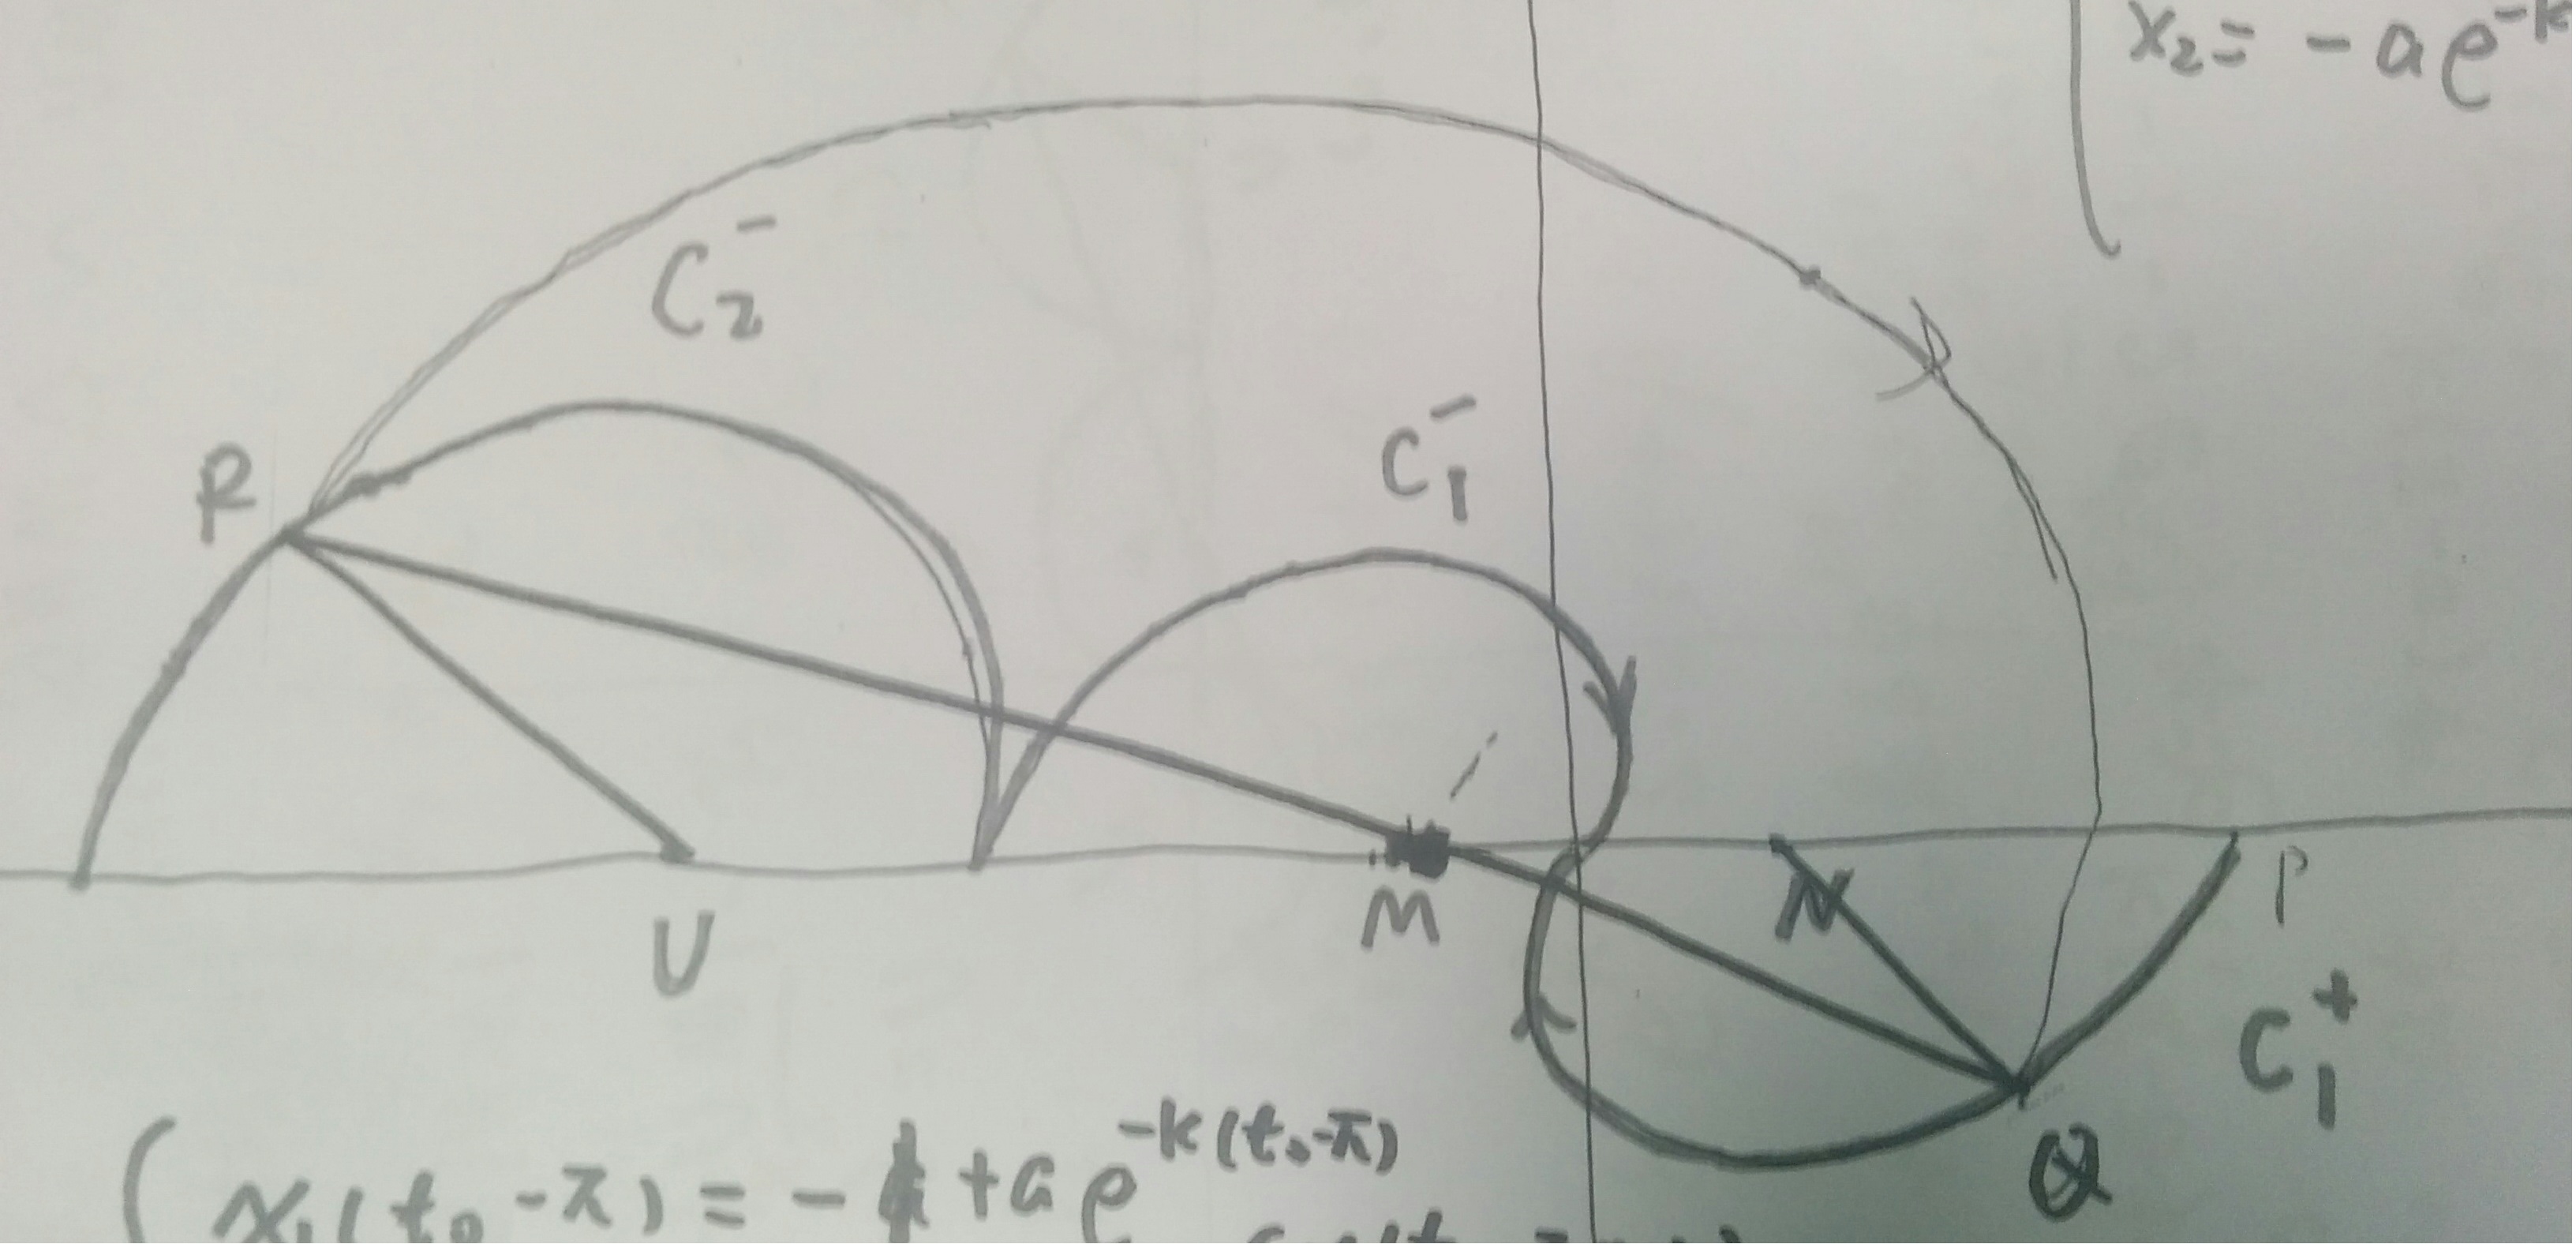 x₂ = - a e^{-k
C₂⁻
C₁⁻
R
N
P
M
U
C₁⁺
Q
x₁(t₀-π) = - + a e^{-k(t₀-π)}